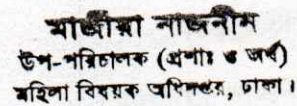 মাজেদা নাজনীন
উপ-পরিচালক (প্রশাঃ ও অর্থ)
মহিলা বিষয়ক অধিদপ্তর, ঢাকা।